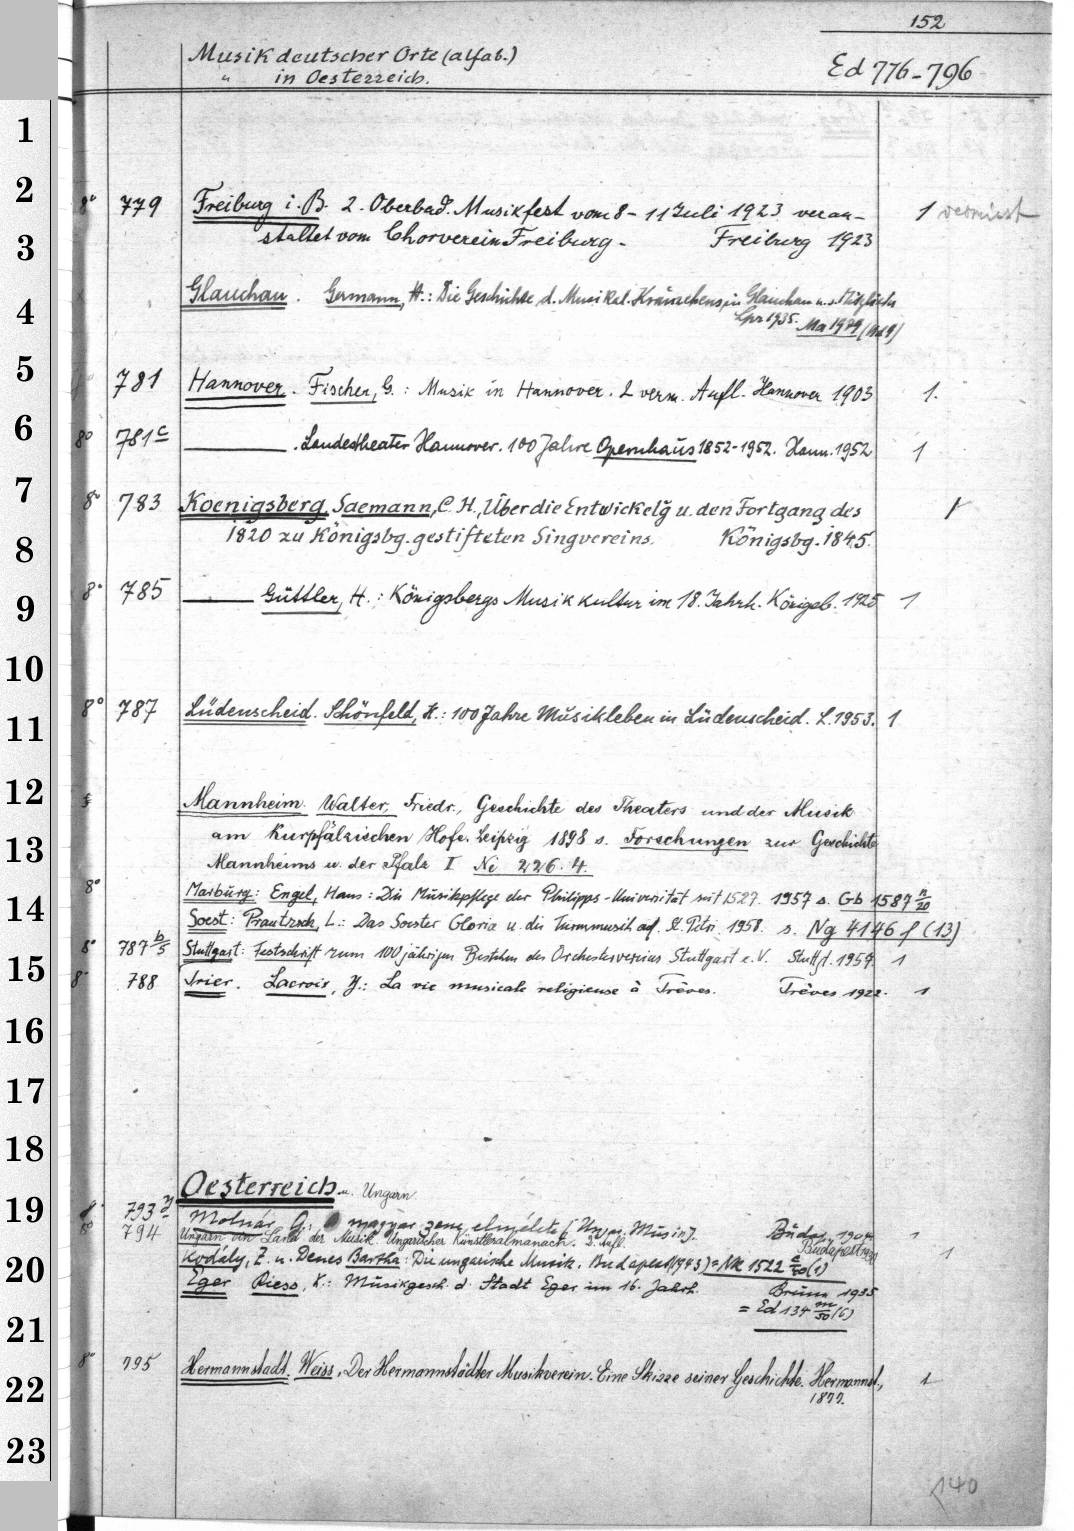 152
Musik deutscher Orte (alfab.)
" in Oesterreich.
Ed 776-796
1
2
3
4
5
6
7
8
9
10
11
12
13
14
15
16
17
18
19
20
21
22
23
8° 779 Freiburg i. B. 2. Oberbad. Musikfest vom 8-11 Juli 1923 veran- 1 vermisst
staltet vom Chorverein Freiburg - Freiburg 1923
Glauchau. Germann, H.: Die Geschichte d. Musikal. Kränzchens in Glauchau u. s. Mitglieder
Lpz 1935. Ma 1979
781 Hannover. Fischer, G.: Musik in Hannover. 2 verm. Aufl. Hannover 1903 1.
8° 781c . Landestheater Hannover. 100 Jahre Opernhaus 1852-1952. Hann. 1952 1
8° 783 Koenigsberg, Saemann, C. H., Über die Entwickelg u. den Fortgang des 1
1820 zu Königsbg. gestifteten Singvereins. Königsbg. 1845.
8° 785 Güttler, H.: Königsbergs Musikkultur im 18. Jahrh. Königsb. 1925 1
8° 787 Lüdenscheid. Schönfeld, H.: 100 Jahre Musikleben in Lüdenscheid. L. 1953. 1
Mannheim. Walter, Friedr., Geschichte des Theaters und der Musik
am Kurpfälzischen Hofe. Leipzig 1898 s. Forschungen zur Geschichte
Mannheims u. der Pfalz I Ni 226.4.
8° Marburg: Engel, Hans: Die Musikpflege der Philipps-Universität seit 1527. 1957 s. Gb 1587 n/20
Soest: Prautzsch, L.: Das Soester Gloria u. die Turmmusik auf St. Petri. 1958. s. Ng 4146 f (13)
8° 787 b/5 Stuttgart: Festschrift zum 100 jährigen Bestehen des Orchestervereins Stuttgart e. V. Stuttg. 1957. 1
8° 788 Trier. Lacroix, J.: La vie musicale religieuse à Trèves. Trèves 1922. 1
Oesterreich u. Ungarn
8° 793 y Molnár, G.: magyar zene [Ungar. Musik]. Budap. 1904 1
8° 794 Ungarn ein Land der Musik. Ungarischer Künstleralmanach. 2. Aufl. Budapest 1
Kodály, Z. u. Denes Bartha: Die ungarische Musik. Budapest (1943) = Nk 1522 c/50 (1)
Eger Riess, K.: Musikgesch. d. Stadt Eger im 16. Jahrh. Brünn 1935
= Ed 134 m/50 (6)
8° 795 Hermannstadt. Weiss, Der Hermannstädter Musikverein. Eine Skizze seiner Geschichte. Hermannst., 1
1877.
140